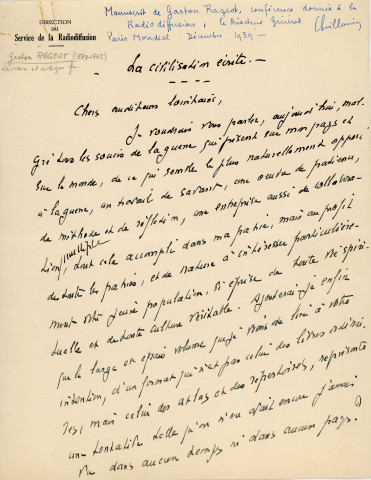 DIRECTION
DU
Service de la Radiodiffusion
Manuscrit de Gaston Rageot, conférence donnée à la
Radiodiffusion, le Directeur Général
Paris Mondial Décembre 1939
Gaston RAGEOT (1872-1942)
écrivain et critique
La civilisation écrite. —
Chers auditeurs lointains,
Je voudrais vous parler, aujourd'hui, mal-
gré tous les soucis de la guerre qui pèsent sur mon pays et
sur le monde, de ce qui semble le plus naturellement opposé
à la guerre, un travail de savants, une œuvre de patience,
de méthode et de réflexion, une entreprise aussi de collabora-
tion multiple, tout cela accompli dans ma patrie, mais au profit
de toutes les patries, et de nature à intéresser particulière-
ment votre jeune population, si éprise de toute vie spiri-
tuelle et de toute culture véritable. Ajouterai-je enfin
que le large et épais volume que je viens de lire à votre
intention, d'un format qui n'est pas celui des livres ordinai-
res, mais celui des atlas et des répertoires, représente
une tentative telle qu'on n'en avait encore jamais
vu dans aucun temps ni dans aucun pays.